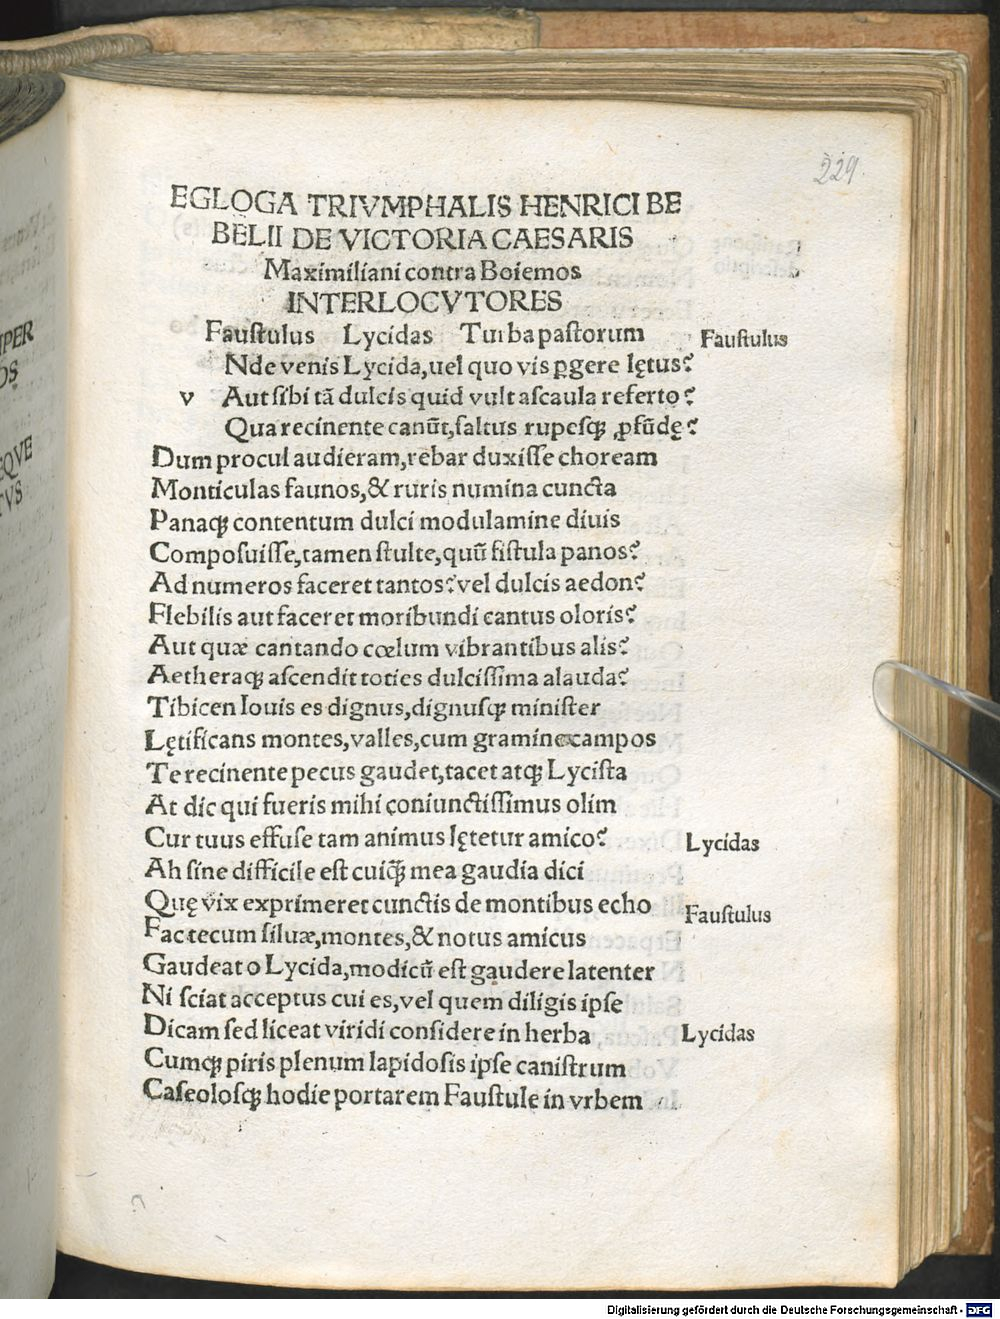 229
EGLOGA TRIVMPHALIS HENRICI BE
BELII DE VICTORIA CAESARIS
Maximiliani contra Boiemos
INTERLOCVTORES
Faustulus Lycidas Turba pastorum
Faustulus
Nde venis Lycida, uel quo vis ꝑgere lętus?
v Aut sibi tā dulcis quid vult ascaula referto?
Qua recinente canūt, saltus rupesqꝫ ꝓfūdę?
Dum procul audieram, rebar duxisse choream
Monticulas faunos, & ruris numina cuncta
Panaqꝫ contentum dulci modulamine diuis
Composuisse, tamen stulte, quū fistula panos?
Ad numeros faceret tantos? vel dulcis aedon?
Flebilis aut faceret moribundi cantus oloris?
Aut quæ cantando cœlum vibrantibus alis?
Aetheraqꝫ ascendit toties dulcissima alauda?
Tibicen Iouis es dignus, dignusqꝫ minister
Lętificans montes, valles, cum gramine campos
Te recinente pecus gaudet, tacet atqꝫ Lycista
At dic qui fueris mihi coniunctissimus olim
Cur tuus effuse tam animus lętetur amico?
Lycidas
Ah sine difficile est cuiqꝫ̄ mea gaudia dici
Quę vix exprimeret cunctis de montibus echo
Faustulus
Fac tecum siluæ, montes, & notus amicus
Gaudeat o Lycida, modicū est gaudere latenter
Ni sciat acceptus cui es, vel quem diligis ipse
Dicam sed liceat viridi considere in herba
Lycidas
Cumqꝫ piris plenum lapidosis ipse canistrum
Caseolosqꝫ hodie portarem Faustule in vrbem
Digitalisierung gefördert durch die Deutsche Forschungsgemeinschaft - DFG